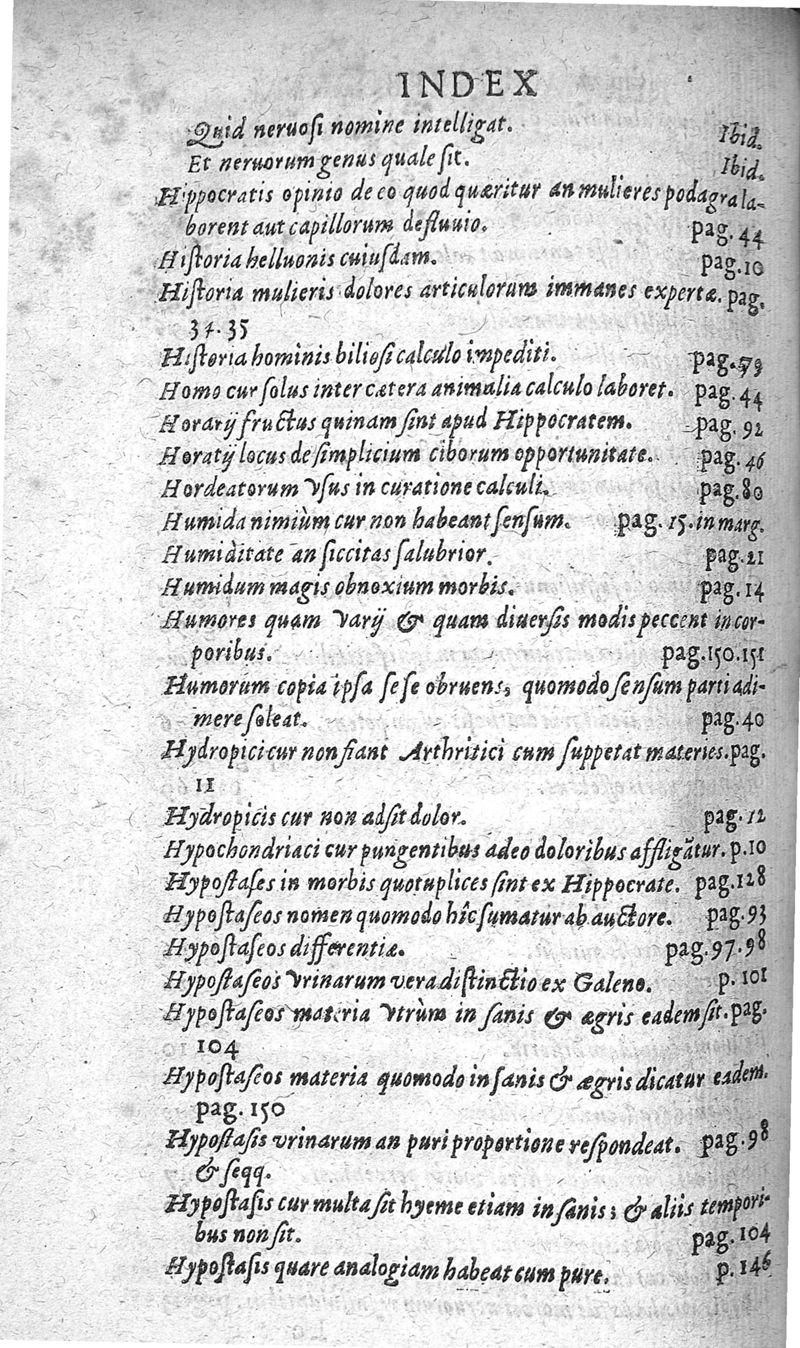 INDEX
Quid neruosi nomine intelligat. Ibid.
Et neruorum genus quale sit. Ibid.
Hippocratis opinio de eo quod quæritur an mulieres podagra la-
borent aut capillorum defluuio. pag. 44
Historia helluonis cuiusdam. pag. 10
Historia mulieris dolores articulorum immanes expertæ. pag.
34. 35
Historia hominis biliosi calculo impediti. pag. 79
Homo cur solus inter cætera animalia calculo laboret. pag. 44
Horarij fructus quinam sint apud Hippocratem. pag. 92
Horatij locus de simplicium ciborum opportunitate. pag. 46
Hordeatorum vsus in curatione calculi. pag. 80
Humida nimiùm cur non habeant sensum. pag. 15. in marg.
Humiditate an siccitas salubrior. pag. 21
Humidum magis obnoxium morbis. pag. 14
Humores quam varij & quam diuersis modis peccent in cor-
poribus. pag. 150. 151
Humorum copia ipsa se se obruens, quomodo sensum parti adi-
mere soleat. pag. 40
Hydropici cur non fiant Arthritici cum suppetat materies. pag.
11
Hydropicis cur non adsit dolor. pag. 12
Hypochondriaci cur pungentibus adeo doloribus affligātur. p. 10
Hypostases in morbis quotuplices sint ex Hippocrate. pag. 128
Hypostaseos nomen quomodo hîc sumatur ab auctore. pag. 93
Hypostaseos differentiæ. pag. 97. 98
Hypostaseos vrinarum vera distinctio ex Galeno. p. 101
Hypostaseos materia vtrùm in sanis & ægris eadem sit. pag.
104
Hypostaseos materia quomodo in sanis & ægris dicatur eadem.
pag. 150
Hypostasis vrinarum an puri proportione respondeat. pag. 98
& seqq.
Hypostasis cur multa sit hyeme etiam in sanis; & aliis tempori-
bus non sit. pag. 104
Hypostasis quare analogiam habeat cum pure. p. 146